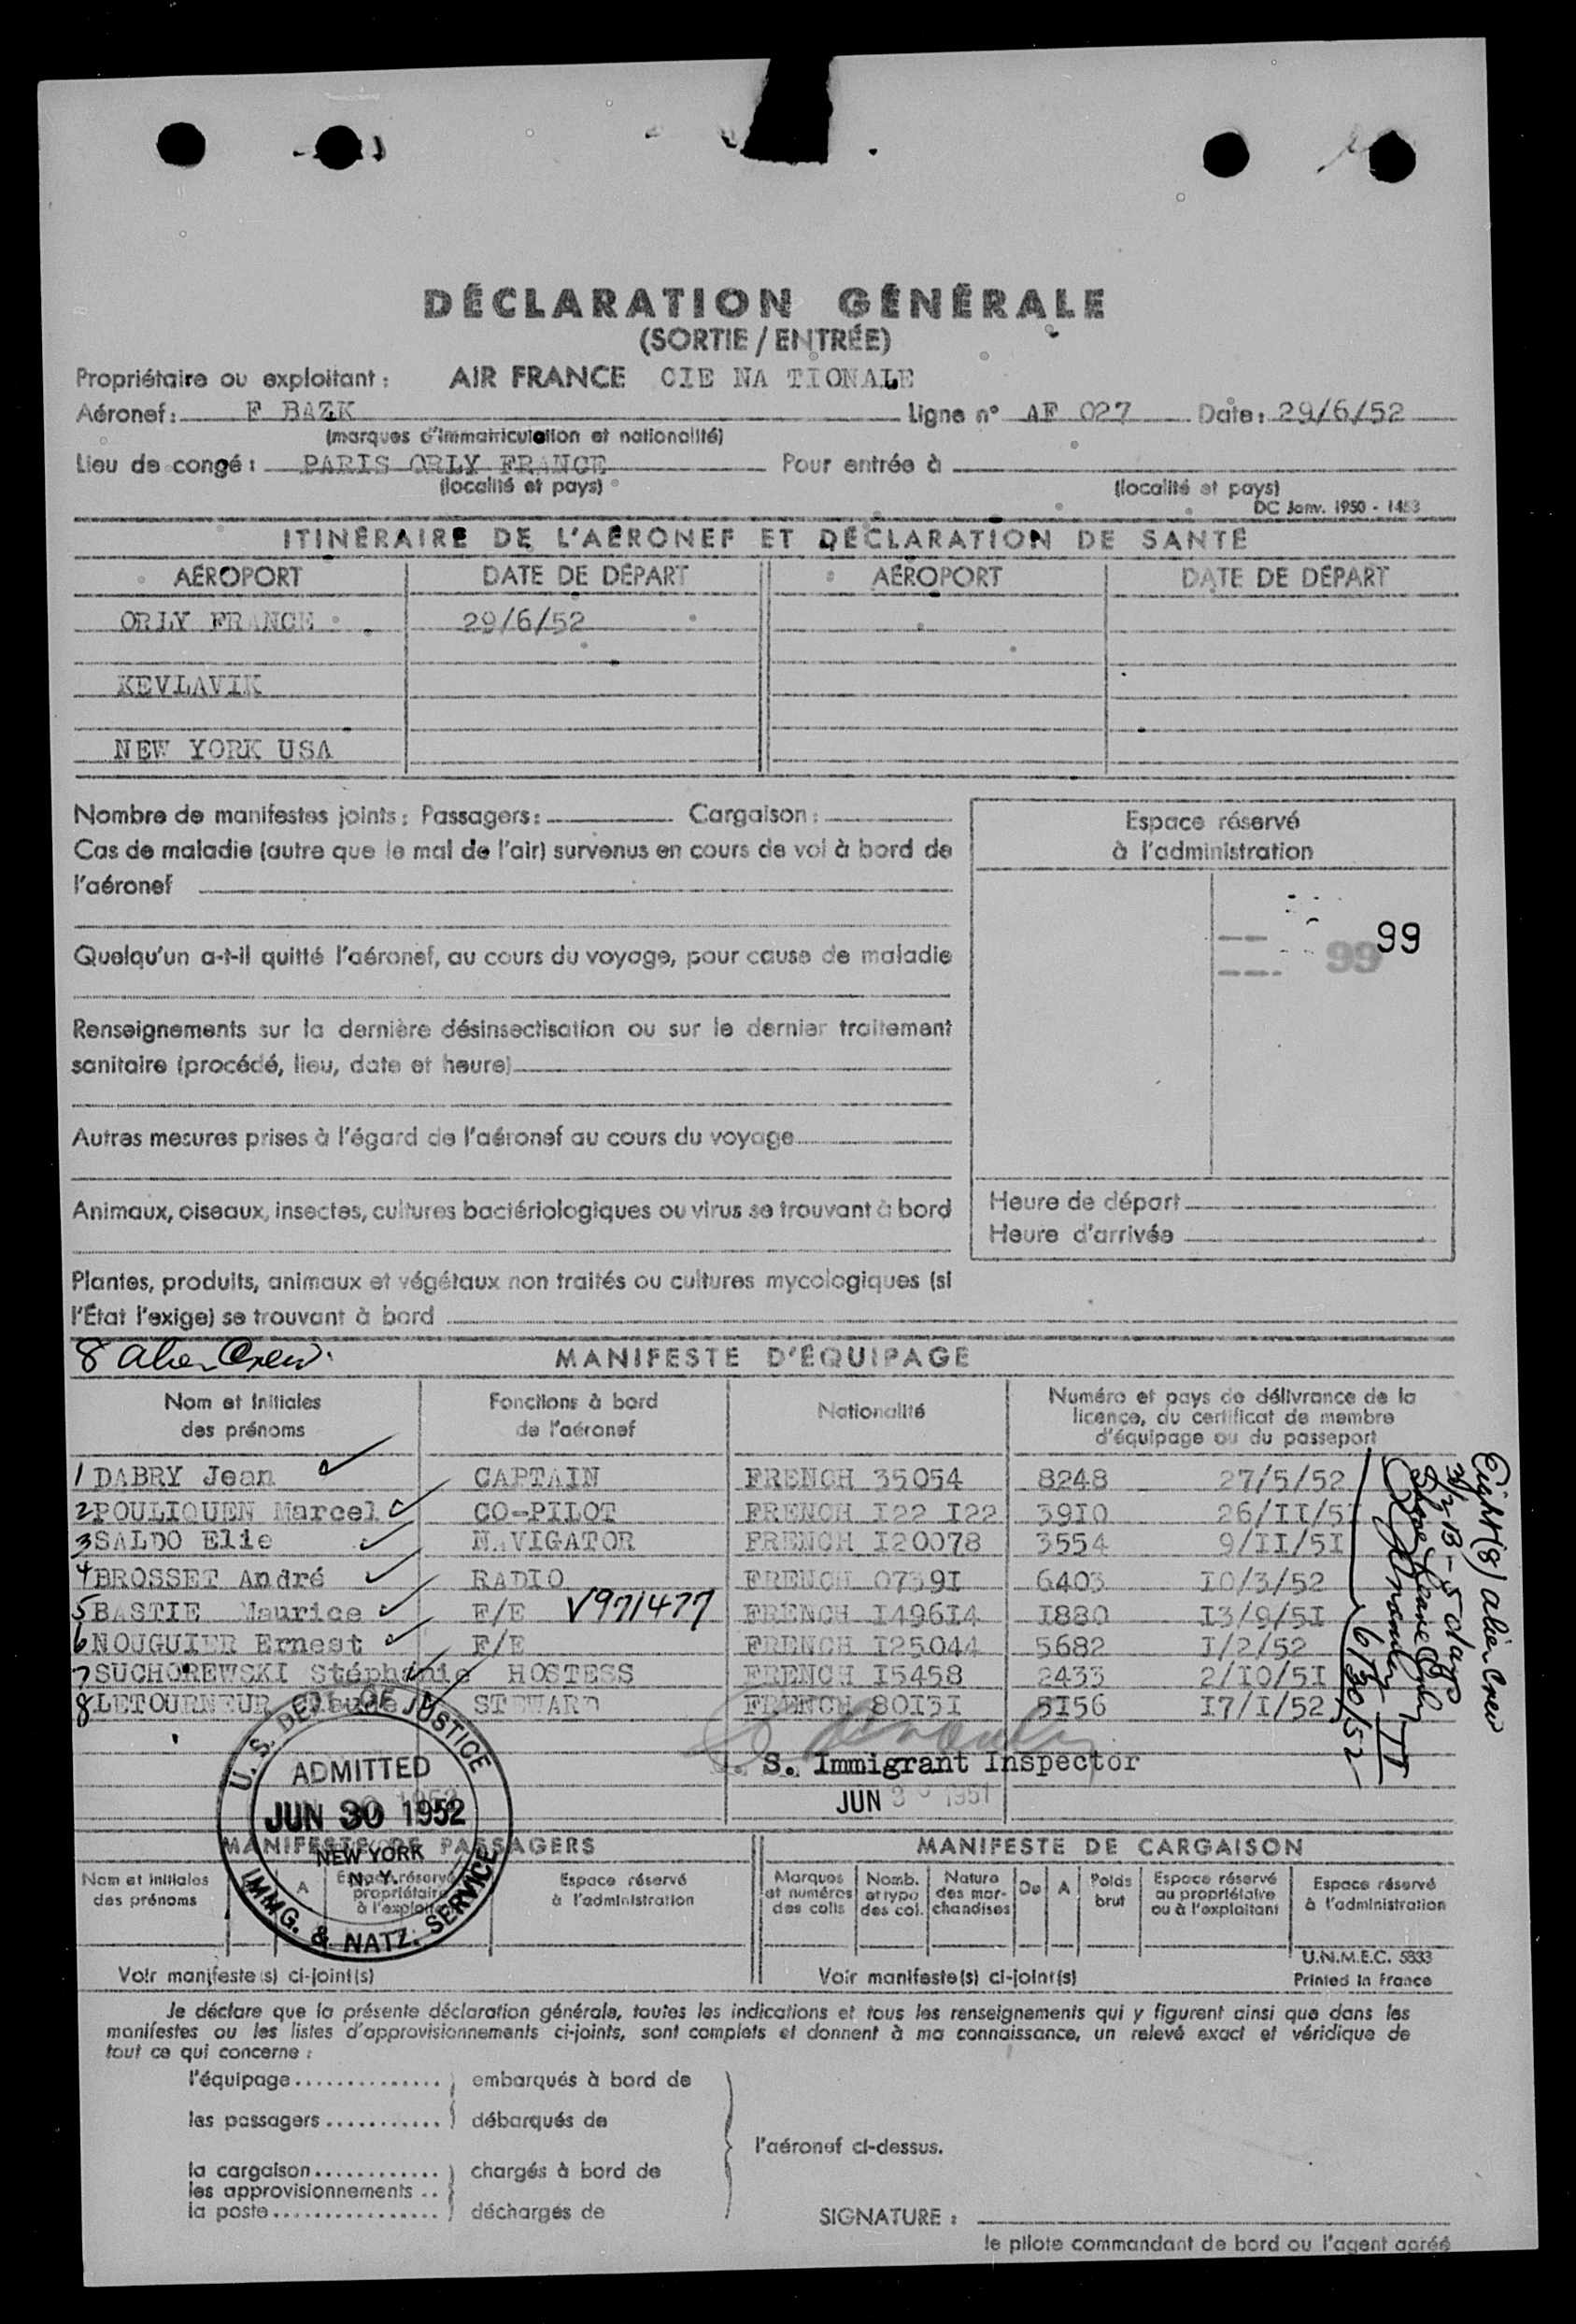 DÉCLARATION GÉNÉRALE
(SORTIE / ENTRÉE)
Propriétaire ou exploitant : AIR FRANCE CIE NA TIONALE
Aéronef : F BAZK Ligne n° AF 027 Date : 29/6/52
(marques d'immatriculation et nationalité)
Lieu de congé : PARIS ORLY FRANCE Pour entrée à
(localité et pays) (localité et pays)
DC Janv. 1950 - 1453
ITINÉRAIRE DE L'AÉRONEF ET DÉCLARATION DE SANTÉ
AÉROPORT DATE DE DÉPART AÉROPORT DATE DE DÉPART
ORLY FRANCE 29/6/52
KEVLAVIK
NEW YORK USA
Nombre de manifestes joints : Passagers : Cargaison :
Cas de maladie (autre que le mal de l'air) survenus en cours de vol à bord de
l'aéronef
Quelqu'un a-t-il quitté l'aéronef, au cours du voyage, pour cause de maladie
Renseignements sur la dernière désinsectisation ou sur le dernier traitement
sanitaire (procédé, lieu, date et heure)
Autres mesures prises à l'égard de l'aéronef au cours du voyage
Animaux, oiseaux, insectes, cultures bactériologiques ou virus se trouvant à bord
Plantes, produits, animaux et végétaux non traités ou cultures mycologiques (si
l'État l'exige) se trouvant à bord
Espace réservé
à l'administration
99 99
Heure de départ
Heure d'arrivée
8 alien Crew.
MANIFESTE D'ÉQUIPAGE
Nom et Initiales des prénoms
Fonctions à bord de l'aéronef
Nationalité
Numéro et pays de délivrance de la licence, du certificat de membre d'équipage ou du passeport
1 DABRY Jean CAPTAIN FRENCH 35054 8248 27/5/52
2 POULIQUEN Marcel CO-PILOT FRENCH I22 I22 39I0 26/II/5
3 SALDO Elie NAVIGATOR FRENCH I20078 3554 9/II/5I
4 BROSSET André RADIO FRENCH 0739I 6403 I0/3/52
5 BASTIE Maurice F/E V971477 FRENCH I496I4 I880 I3/9/5I
6 NOUGUIER Ernest F/E FRENCH I25044 5682 I/2/52
7 SUCHOREWSKI Stéphanie HOSTESS FRENCH I5458 2433 2/I0/5I
8 LETOURNEUR Claude STEWARD FRENCH 80I3I 5I56 I7/I/52
Eight (8) alien Crew
6/30/52
U.S. DEPT. OF JUSTICE
ADMITTED
JUN 30 1952
NEW YORK
N. Y.
IMMG. & NATZ. SERVICE
S. Immigrant Inspector
JUN 30 1951
MANIFESTE DE PASSAGERS
Nom et Initiales des prénoms
A
Espace réservé propriétaire à l'exploitant
Espace réservé à l'administration
Voir manifeste(s) ci-joint(s)
MANIFESTE DE CARGAISON
Marques et numéros des colis
Nomb. et type des col.
Nature des marchandises
De
A
Poids brut
Espace réservé au propriétaire ou à l'exploitant
Espace réservé à l'administration
U.N.M.E.C. 5833
Voir manifeste(s) ci-joint(s)
Printed in France
Je déclare que la présente déclaration générale, toutes les indications et tous les renseignements qui y figurent ainsi que dans les
manifestes ou les listes d'approvisionnements ci-joints, sont complets et donnent à ma connaissance, un relevé exact et véridique de
tout ce qui concerne :
l'équipage embarqués à bord de
les passagers débarqués de
l'aéronef ci-dessus.
la cargaison chargés à bord de
les approvisionnements
la poste déchargés de
SIGNATURE :
le pilote commandant de bord ou l'agent agréé